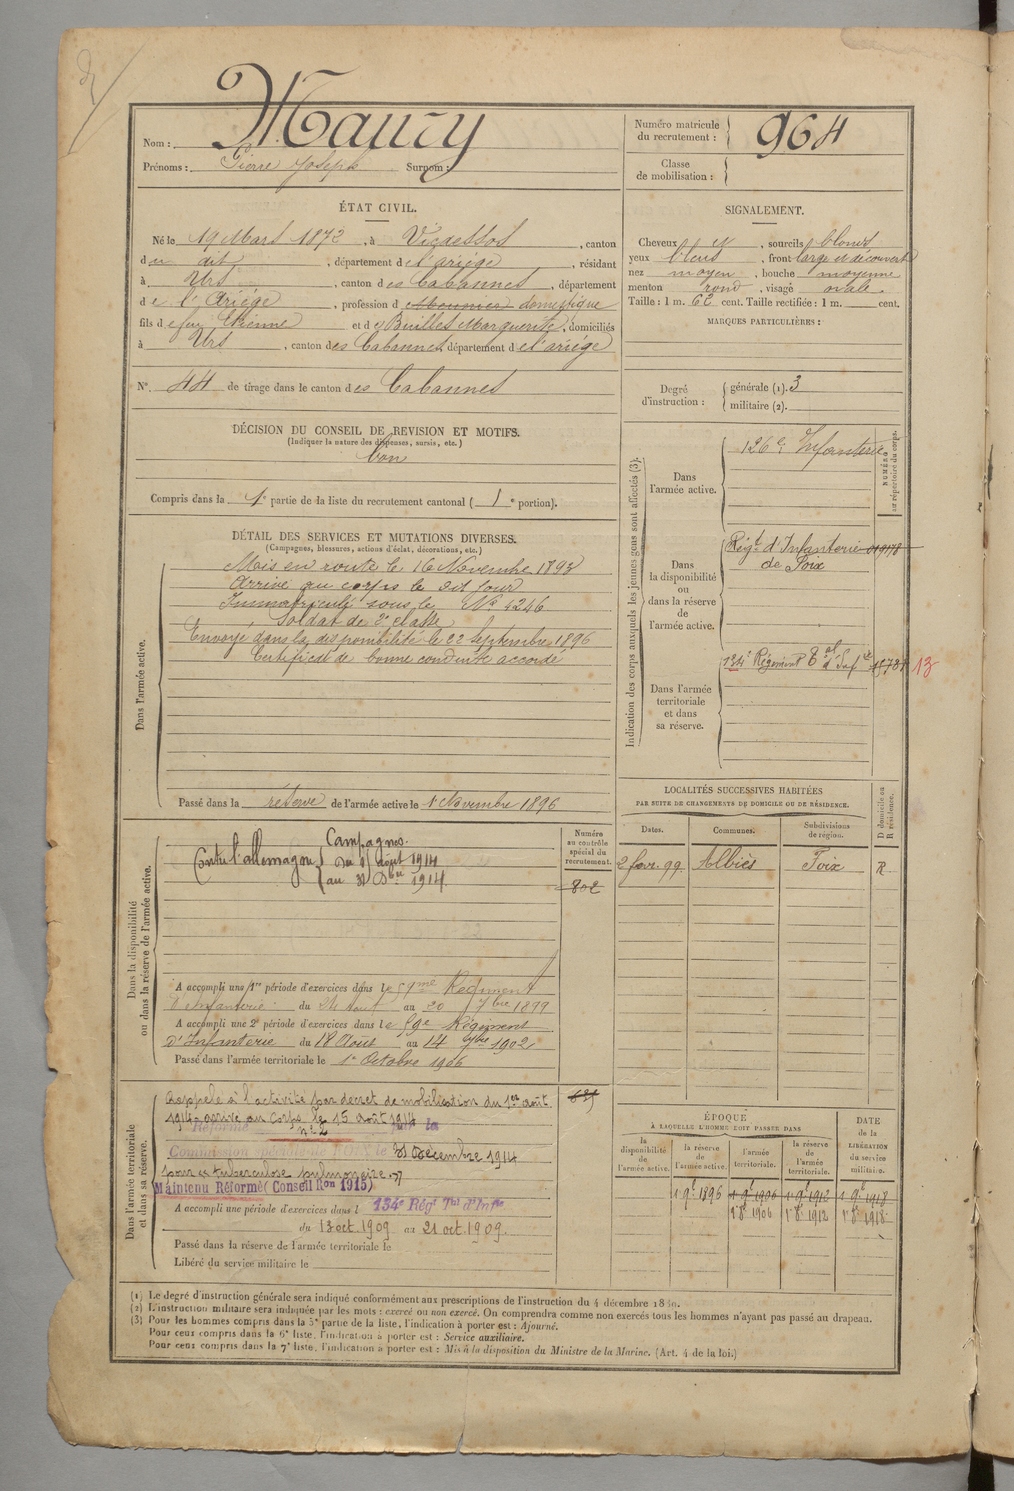 Nom : Maury
Prénoms : Pierre Joseph Surnom :
Numéro matricule du recrutement : 964
Classe de mobilisation :
ÉTAT CIVIL.
Né le 19 Mars 1872, à Vicdessos, canton
du dit, département de l'ariége, résidant
à Urs, canton des Cabannes, département
de l'Ariége, profession de domestique
fils de feu Etienne et de Builles Marguerite, domiciliés
à Urs, canton des Cabannes, département de l'ariége
N° 44 de tirage dans le canton des Cabannes
DÉCISION DU CONSEIL DE REVISION ET MOTIFS.
(Indiquer la nature des dispenses, sursis, etc.)
bon
Compris dans la 1e partie de la liste du recrutement cantonal (1e portion).
SIGNALEMENT.
Cheveux et, sourcils blonds
yeux bleus, front large et découvert
nez moyen, bouche moyenne
menton rond, visage ovale
Taille : 1 m. 62 cent. Taille rectifiée : 1 m. cent.
MARQUES PARTICULIÈRES :
Degré d'instruction : générale (1). 3
militaire (2).
DÉTAIL DES SERVICES ET MUTATIONS DIVERSES.
(Campagnes, blessures, actions d'éclat, décorations, etc.)
Dans l'armée active.
Mis en route le 16 Novembre 1893
Arrivé au corps le dit jour
Immatriculé sous le N° 4246
Soldat de 2e classe
Envoyé dans la disponibilité le 22 Septembre 1896
Certificat de bonne conduite accordé
Passé dans la réserve de l'armée active le 1 Novembre 1896
Indication des corps auxquels les jeunes gens sont affectés (3).
NUMÉRO au répertoire du corps.
Dans l'armée active.
126e Infanterie
Dans la disponibilité ou dans la réserve de l'armée active.
Régt d'Infanterie
de Foix
Dans l'armée territoriale et dans sa réserve.
134e Régiment Tal d'Infie
13
LOCALITÉS SUCCESSIVES HABITÉES
PAR SUITE DE CHANGEMENTS DE DOMICILE OU DE RÉSIDENCE.
Dates. Communes. Subdivisions de région. D domicile ou R résidence.
2 fevr. 99 Albiès Foix R
Dans la disponibilité ou dans la réserve de l'armée active.
Numéro au contrôle spécial du recrutement.
802
Campagnes.
Contre l'allemagne du août 1914
au 31 Dbre 1914
A accompli une 1re période d'exercices dans le 59me Régiment
d'Infanterie du 24 aout au 20 7bre 1899
A accompli une 2e période d'exercices dans le 59e Régiment
D'Infanterie du 18 Aout au 14 7bre 1902
Passé dans l'armée territoriale le 1er Octobre 1906
Dans l'armée territoriale et dans sa réserve.
Rappelé à l'activité par decret de mobilisation du 1er août
1914 arrivé au Corps le 15 août 1914
Réformé n° 2 par la
Commission spéciale de Foix le 31 Décembre 1914
pour tuberculose pulmonaire
Maintenu Réformé (Conseil Ron 1915)
A accompli une période d'exercices dans l 134e Régt Tal d'Infie
du 13 oct. 1909 au 21 oct. 1909.
Passé dans la réserve de l'armée territoriale le
Libéré du service militaire le
ÉPOQUE
À LAQUELLE L'HOMME DOIT PASSER DANS
la disponibilité de l'armée active. la réserve de l'armée active. l'armée territoriale. la réserve de l'armée territoriale. DATE de la LIBÉRATION du service militaire.
1 9e 1896 1 9e 1906 1 9e 1912 1 9e 1918
1 8e 1906 1 8e 1912 1 8e 1918
(1) Le degré d'instruction générale sera indiqué conformément aux prescriptions de l'instruction du 4 décembre 1889.
(2) L'instruction militaire sera indiquée par les mots : exercé ou non exercé. On comprendra comme non exercés tous les hommes n'ayant pas passé au drapeau.
(3) Pour les hommes compris dans la 5e partie de la liste, l'indication à porter est : Ajourné.
Pour ceux compris dans la 6e liste, l'indication à porter est : Service auxiliaire.
Pour ceux compris dans la 7e liste, l'indication à porter est : Mis à la disposition du Ministre de la Marine. (Art. 4 de la loi.)